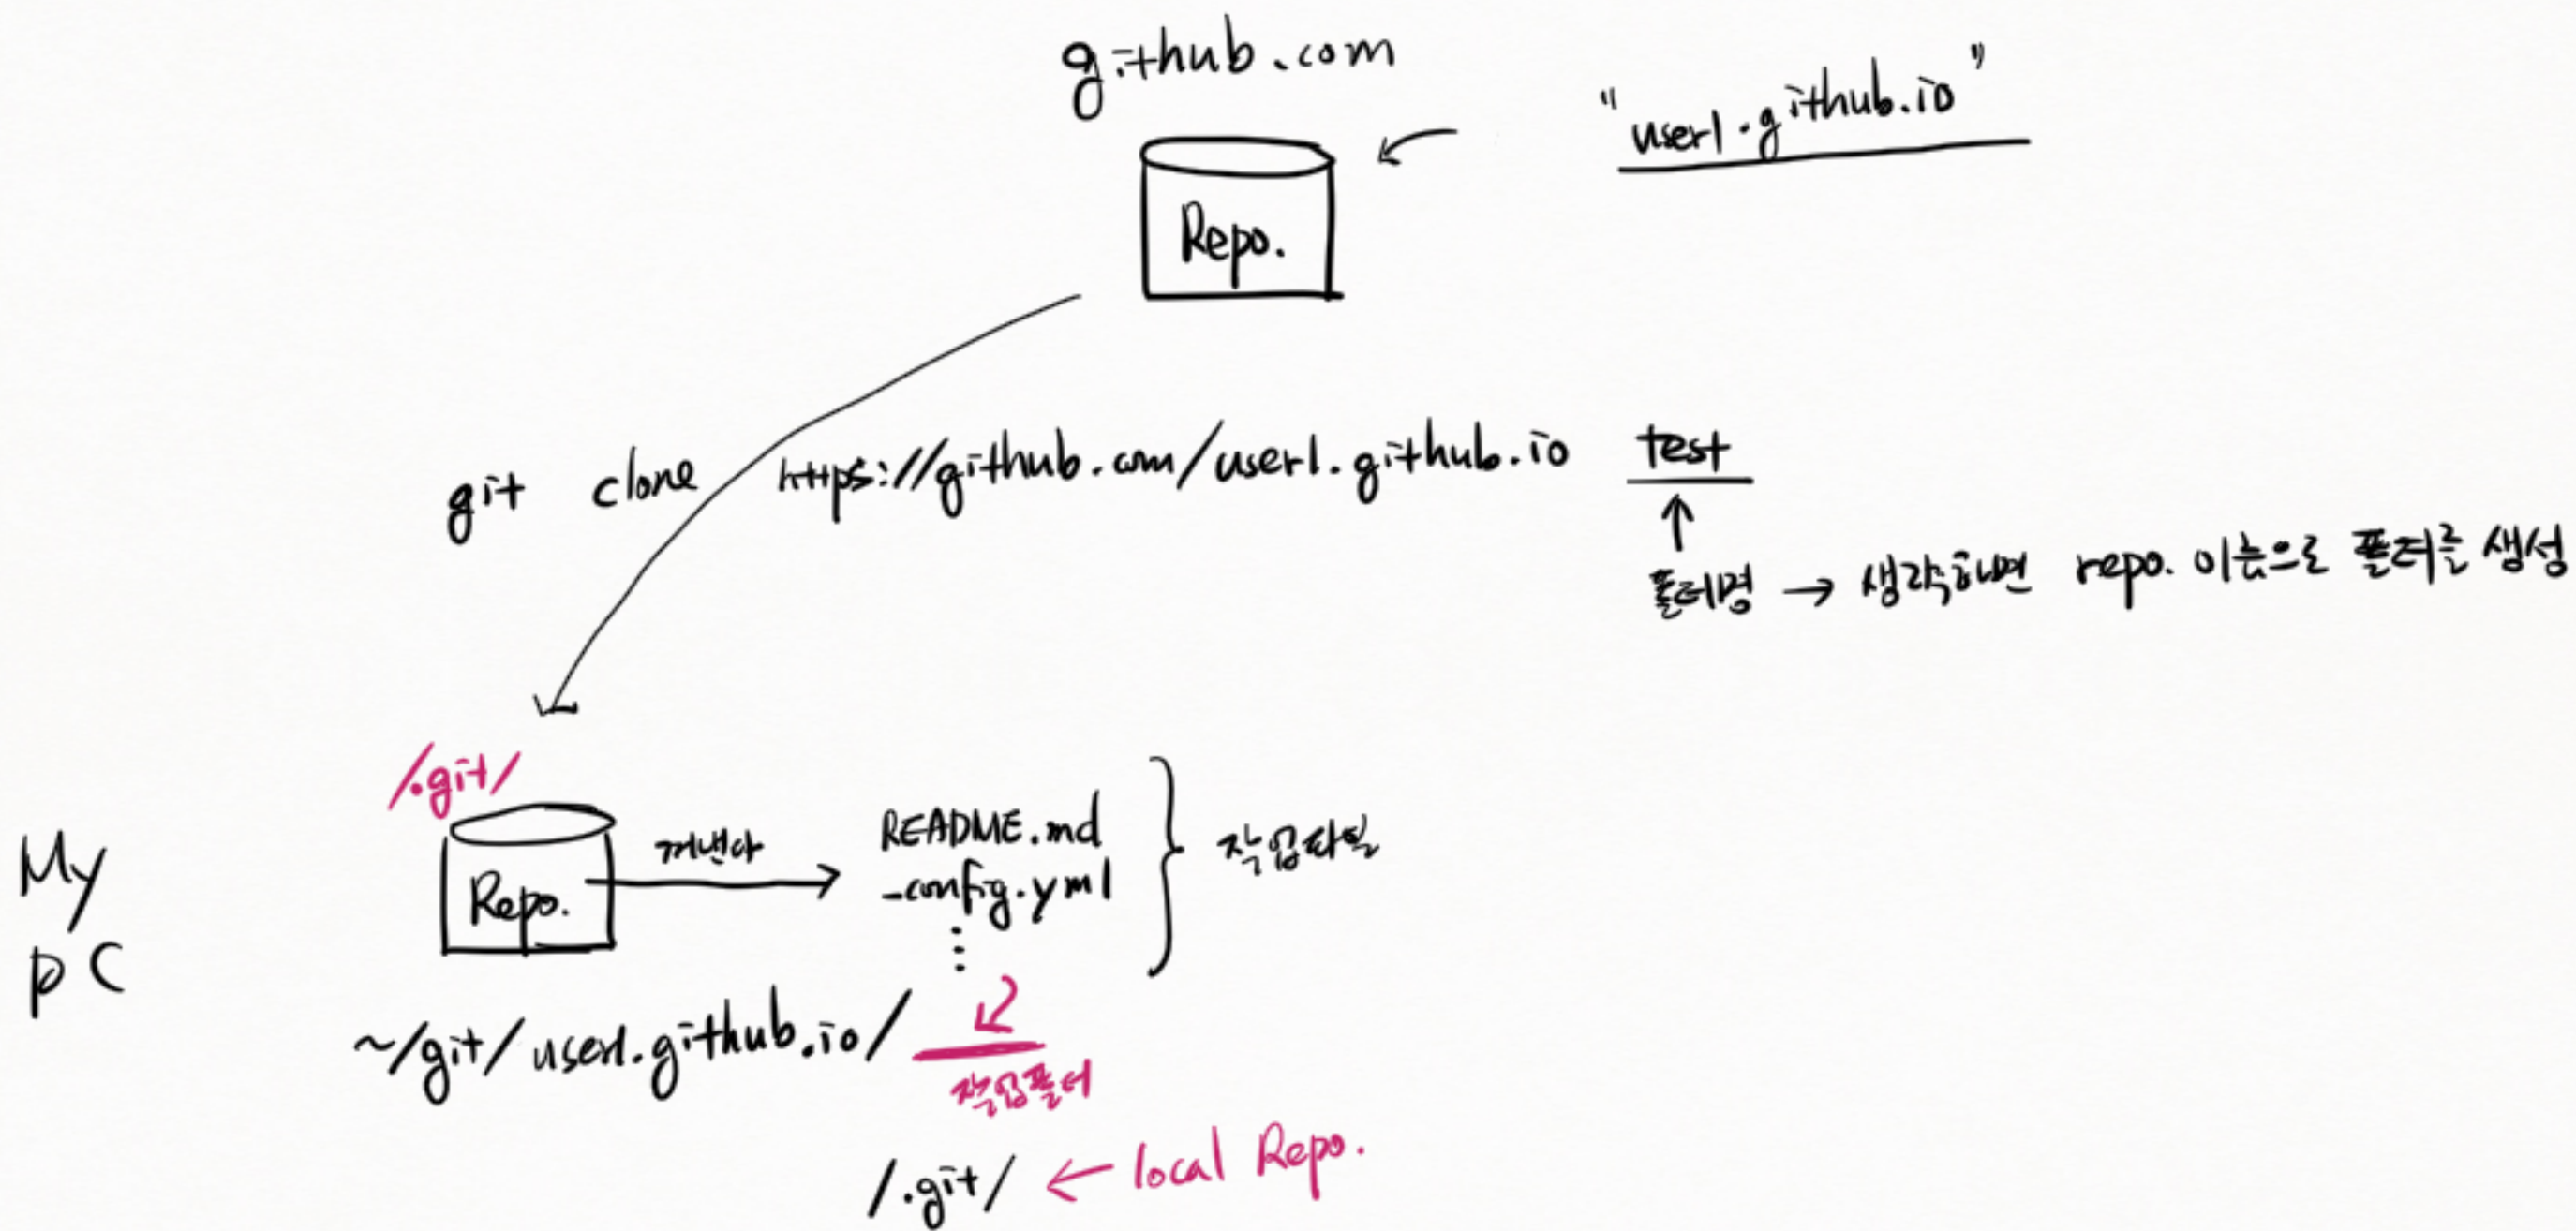 github.com
"user1.github.io"
Repo.
git clone https://github.com/user1.github.io test
폴더명 → 생략하면 repo. 이름으로 폴더를 생성
/.git/
My
PC
Repo.
꺼낸다
README.md
_config.yml
⋮
작업파일
~/git/user1.github.io/
작업폴더
/.git/ ← local Repo.